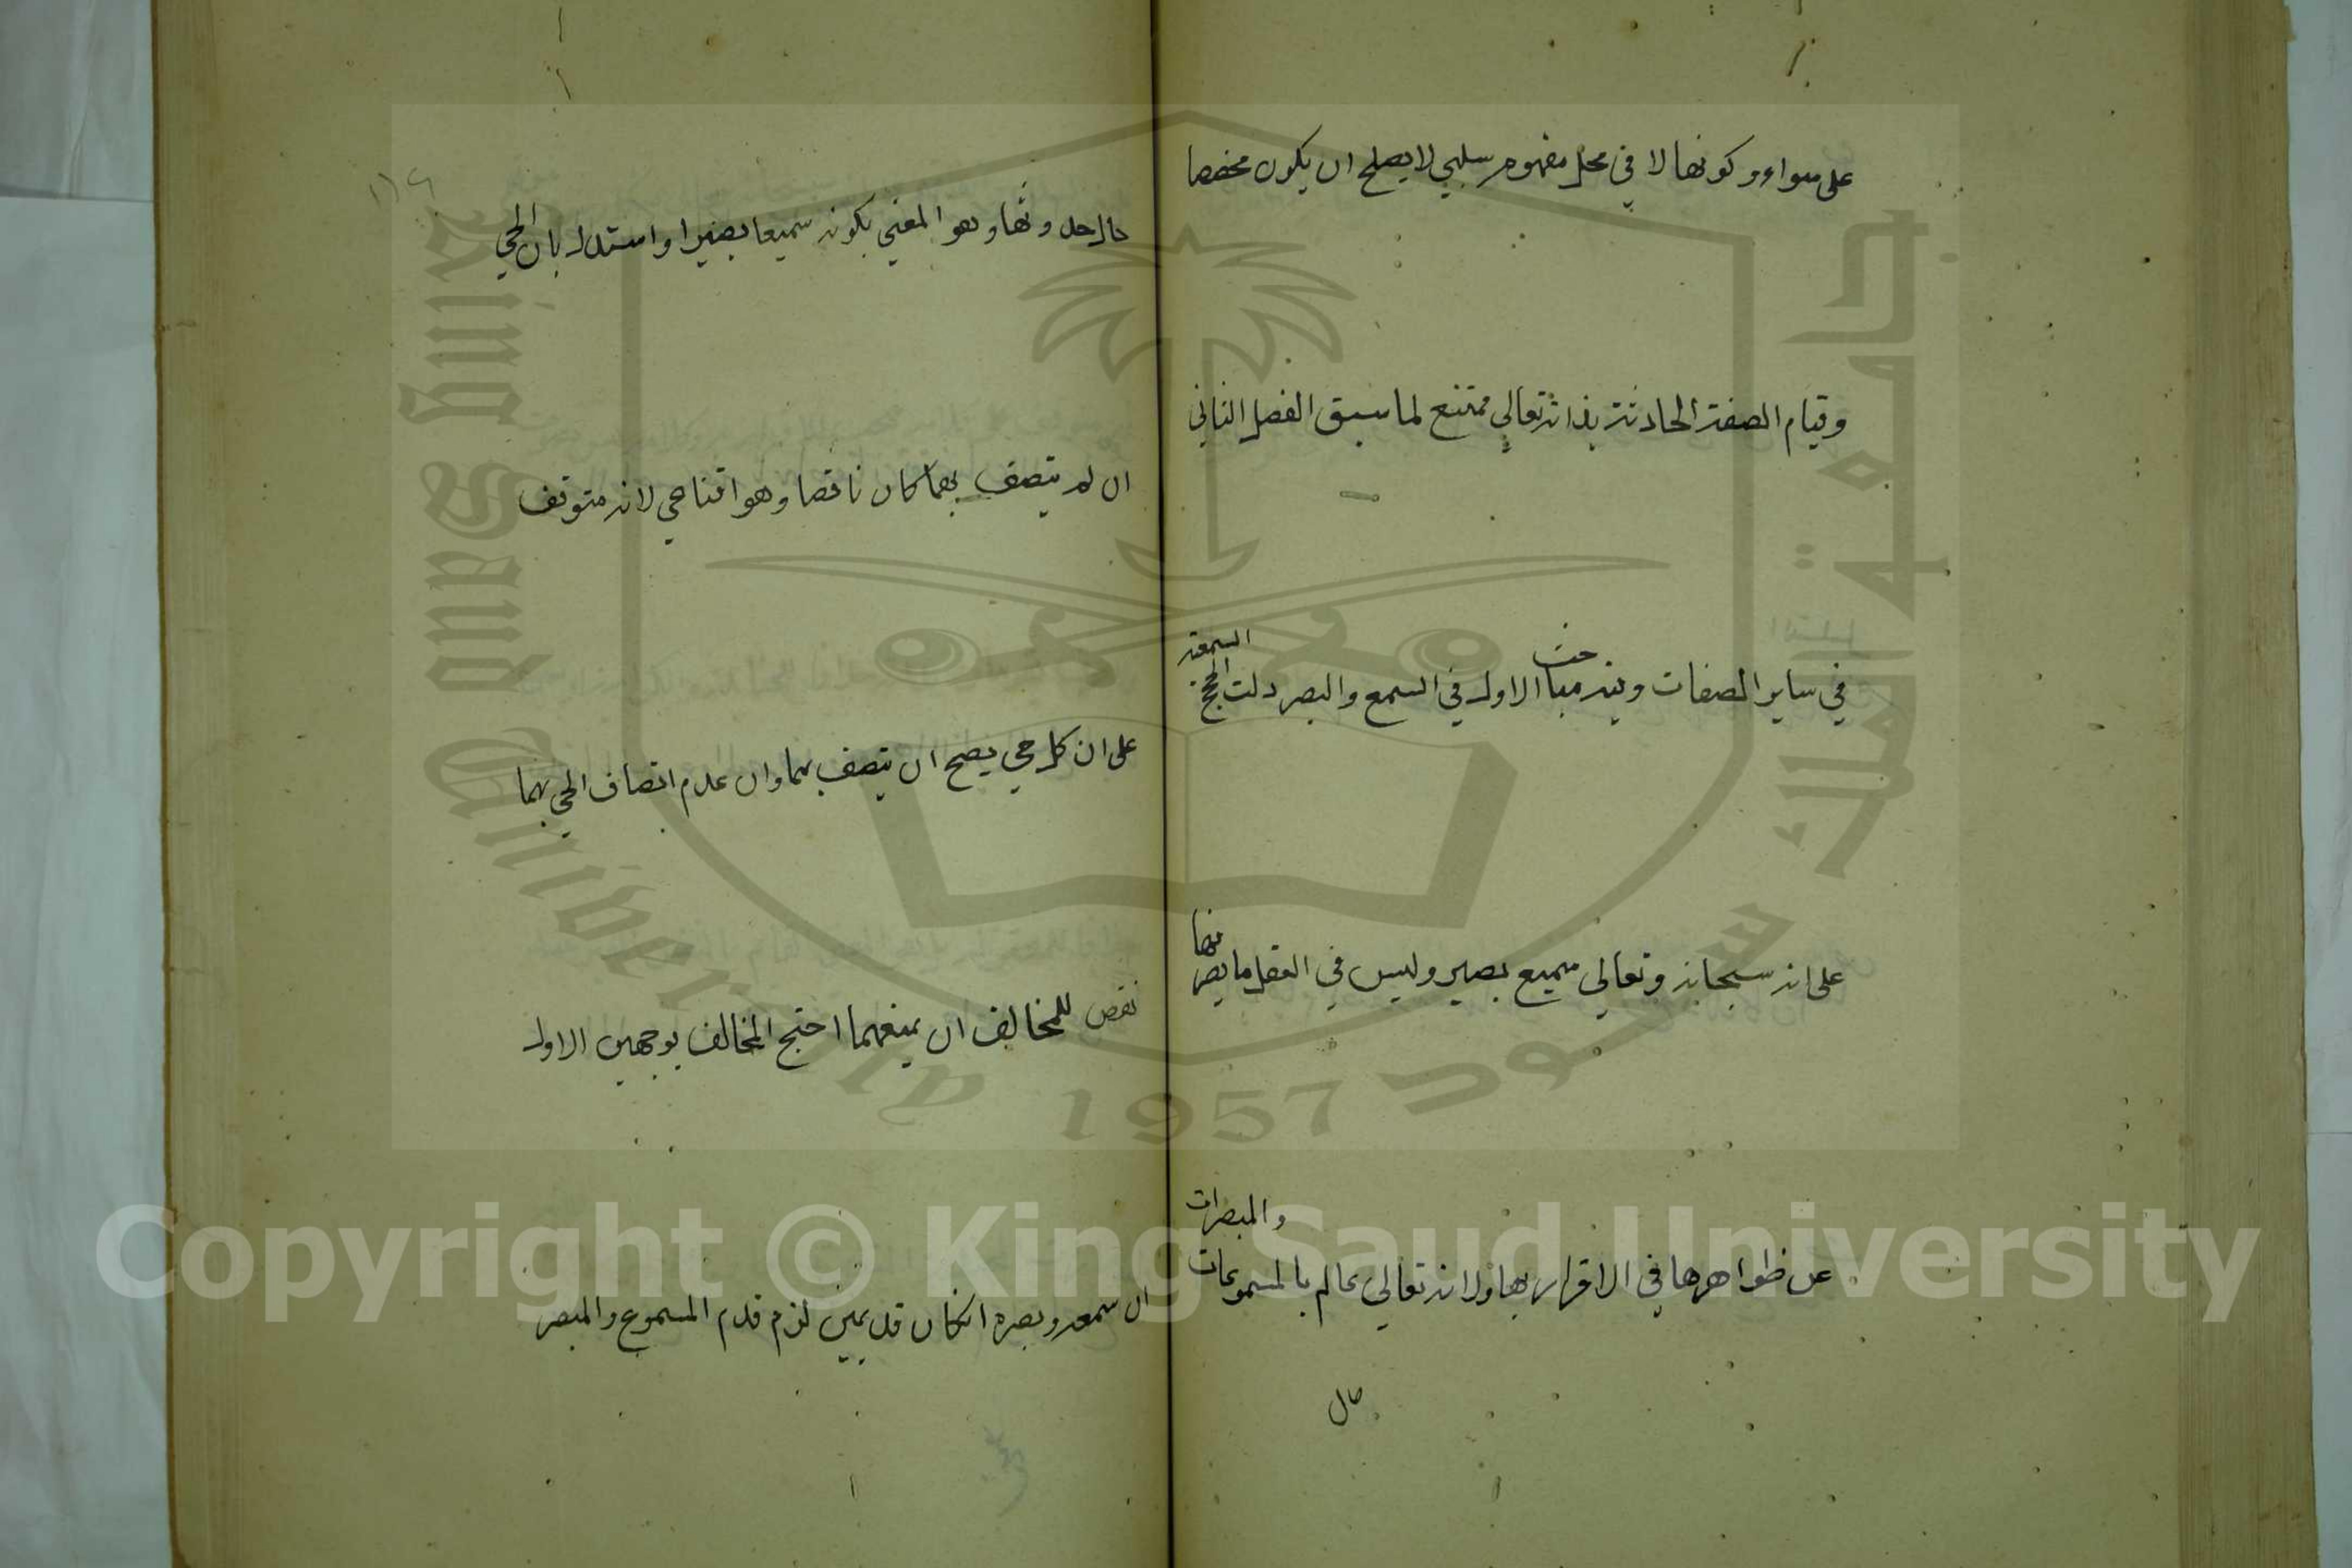 على سواء وكونها لا في محل مفهوم سلبي لا يصلح ان يكون مخصصا
وقيام الصفة الحادثة بذاته تعالى ممتنع لما سبق الفصل الثاني
في ساير الصفات وفيه مباحث الاول في السمع والبصر دلت الحجج السمعية
على انه سبحانه وتعالى سميع بصير وليس في العقل ما يصرفها
عن ظواهرها في الاقرار بها ولانه تعالى عالم بالمسموعات والمبصرات
حال
حال حدوثها وهو المعني بكونه سميعا بصيرا واستدل بان الحي
ان لم يتصف بهما كان ناقصا وهو اقناعي لانه متوقف
على ان كل حي يصح ان يتصف بهما وان عدم اتصاف الحي بهما
نقص للمخالف ان يمنعهما احتج المخالف بوجهين الاول
ان سمعه وبصره انكان قديمين لزم قدم المسموع والمبصر
جامعة الملك سعود
King Saud University
1957
Copyright © King Saud University